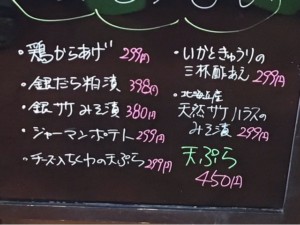 ・鶏からあげ 299円
・銀だら粕漬 398円
・銀サケみそ漬 380円
・ジャーマンポテト 299円
・チーズ入ちくわの天ぷら 299円
・いかときゅうりの
三杯酢あえ 299円
・北海道産
天然サケハラスの
みそ漬 299円
天ぷら
450円